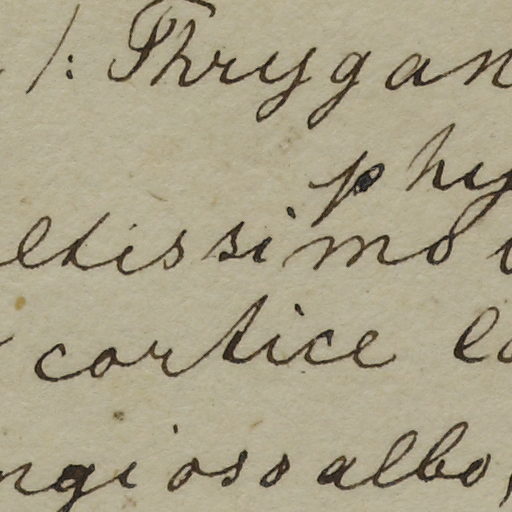 /: Thrygan
phy
ltissimo
cortice
ngioso albo,